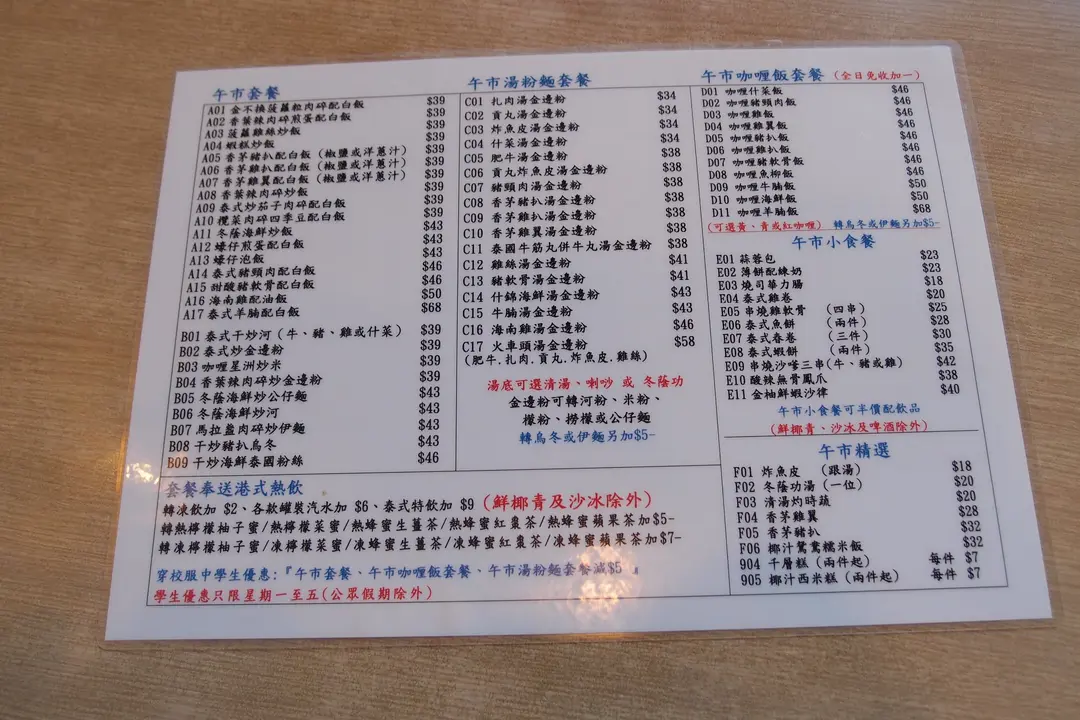 午市套餐
A01 金不換菠蘿粒肉碎配白飯 $39
A02 香葉辣肉碎煎蛋配白飯 $39
A03 菠蘿雞絲炒飯 $39
A04 蝦糕炒飯 $39
A05 香茅豬扒配白飯 (椒鹽或洋蔥汁) $39
A06 香茅雞扒配白飯 (椒鹽或洋蔥汁) $39
A07 香茅雞翼配白飯 (椒鹽或洋蔥汁) $39
A08 香葉辣肉碎炒飯 $39
A09 泰式炒茄子肉碎配白飯 $39
A10 欖菜肉碎四季豆配白飯 $39
A11 冬蔭海鮮炒飯 $43
A12 蠔仔煎蛋配白飯 $43
A13 蠔仔泡飯 $43
A14 泰式豬頸肉配白飯 $46
A15 甜酸豬軟骨配白飯 $46
A16 海南雞配油飯 $50
A17 泰式羊腩配白飯 $68
B01 泰式干炒河 (牛、豬、雞或什菜) $39
B02 泰式炒金邊粉 $39
B03 咖喱星洲炒米 $39
B04 香葉辣肉碎炒金邊粉 $39
B05 冬蔭海鮮炒公仔麵 $43
B06 冬蔭海鮮炒河 $43
B07 馬拉盞肉碎炒伊麵 $43
B08 干炒豬扒烏冬 $43
B09 干炒海鮮泰國粉絲 $46
午市湯粉麵套餐
C01 扎肉湯金邊粉 $34
C02 貢丸湯金邊粉 $34
C03 炸魚皮湯金邊粉 $34
C04 什菜湯金邊粉 $34
C05 肥牛湯金邊粉 $38
C06 貢丸炸魚皮湯金邊粉 $38
C07 豬頸肉湯金邊粉 $38
C08 香茅豬扒湯金邊粉 $38
C09 香茅雞扒湯金邊粉 $38
C10 香茅雞翼湯金邊粉 $38
C11 泰國牛筋丸併牛丸湯金邊粉 $38
C12 雞絲湯金邊粉 $41
C13 豬軟骨湯金邊粉 $41
C14 什錦海鮮湯金邊粉 $43
C15 牛腩湯金邊粉 $43
C16 海南雞湯金邊粉 $46
C17 火車頭湯金邊粉 $58
(肥牛.扎肉.貢丸.炸魚皮.雞絲)
湯底可選清湯、喇吵 或 冬蔭功
金邊粉可轉河粉、米粉、
檬粉、撈檬或公仔麵
轉烏冬或伊麵另加$5-
午市咖喱飯套餐 (全日免收加一)
D01 咖喱什菜飯 $46
D02 咖喱豬頸肉飯 $46
D03 咖喱雞飯 $46
D04 咖喱雞翼飯 $46
D05 咖喱豬扒飯 $46
D06 咖喱雞扒飯 $46
D07 咖喱豬軟骨飯 $46
D08 咖喱魚柳飯 $46
D09 咖喱牛腩飯 $50
D10 咖喱海鮮飯 $50
D11 咖喱羊腩飯 $68
(可選黃、青或紅咖喱) 轉烏冬或伊麵另加$5-
午市小食餐
E01 蒜蓉包 $23
E02 薄餅配煉奶 $23
E03 燒司華力腸 $18
E04 泰式雞卷 $20
E05 串燒雞軟骨 (四串) $25
E06 泰式魚餅 (兩件) $28
E07 泰式春卷 (三件) $30
E08 泰式蝦餅 (兩件) $35
E09 串燒沙嗲三串(牛、豬或雞) $42
E10 酸辣無骨鳳爪 $38
E11 金柚鮮蝦沙律 $40
午市小食餐可半價配飲品
(鮮椰青、沙冰及啤酒除外)
午市精選
F01 炸魚皮 (跟湯) $18
F02 冬蔭功湯 (一位) $20
F03 清湯灼時蔬 $20
F04 香茅雞翼 $28
F05 香茅豬扒 $32
F06 椰汁鴛鴦糯米飯 $32
904 千層糕 (兩件起) 每件 $7
905 椰汁西米糕 (兩件起) 每件 $7
套餐奉送港式熱飲
轉凍飲加 $2、各款罐裝汽水加 $6、泰式特飲加 $9 (鮮椰青及沙冰除外)
轉熱檸檬柚子蜜/熱檸檬菜蜜/熱蜂蜜生薑茶/熱蜂蜜紅棗茶/熱蜂蜜蘋果茶加$5-
轉凍檸檬柚子蜜/凍檸檬菜蜜/凍蜂蜜生薑茶/凍蜂蜜紅棗茶/凍蜂蜜蘋果茶加$7-
穿校服中學生優惠:『午市套餐、午市咖喱飯套餐、午市湯粉麵套餐減$5 』
學生優惠只限星期一至五(公眾假期除外)